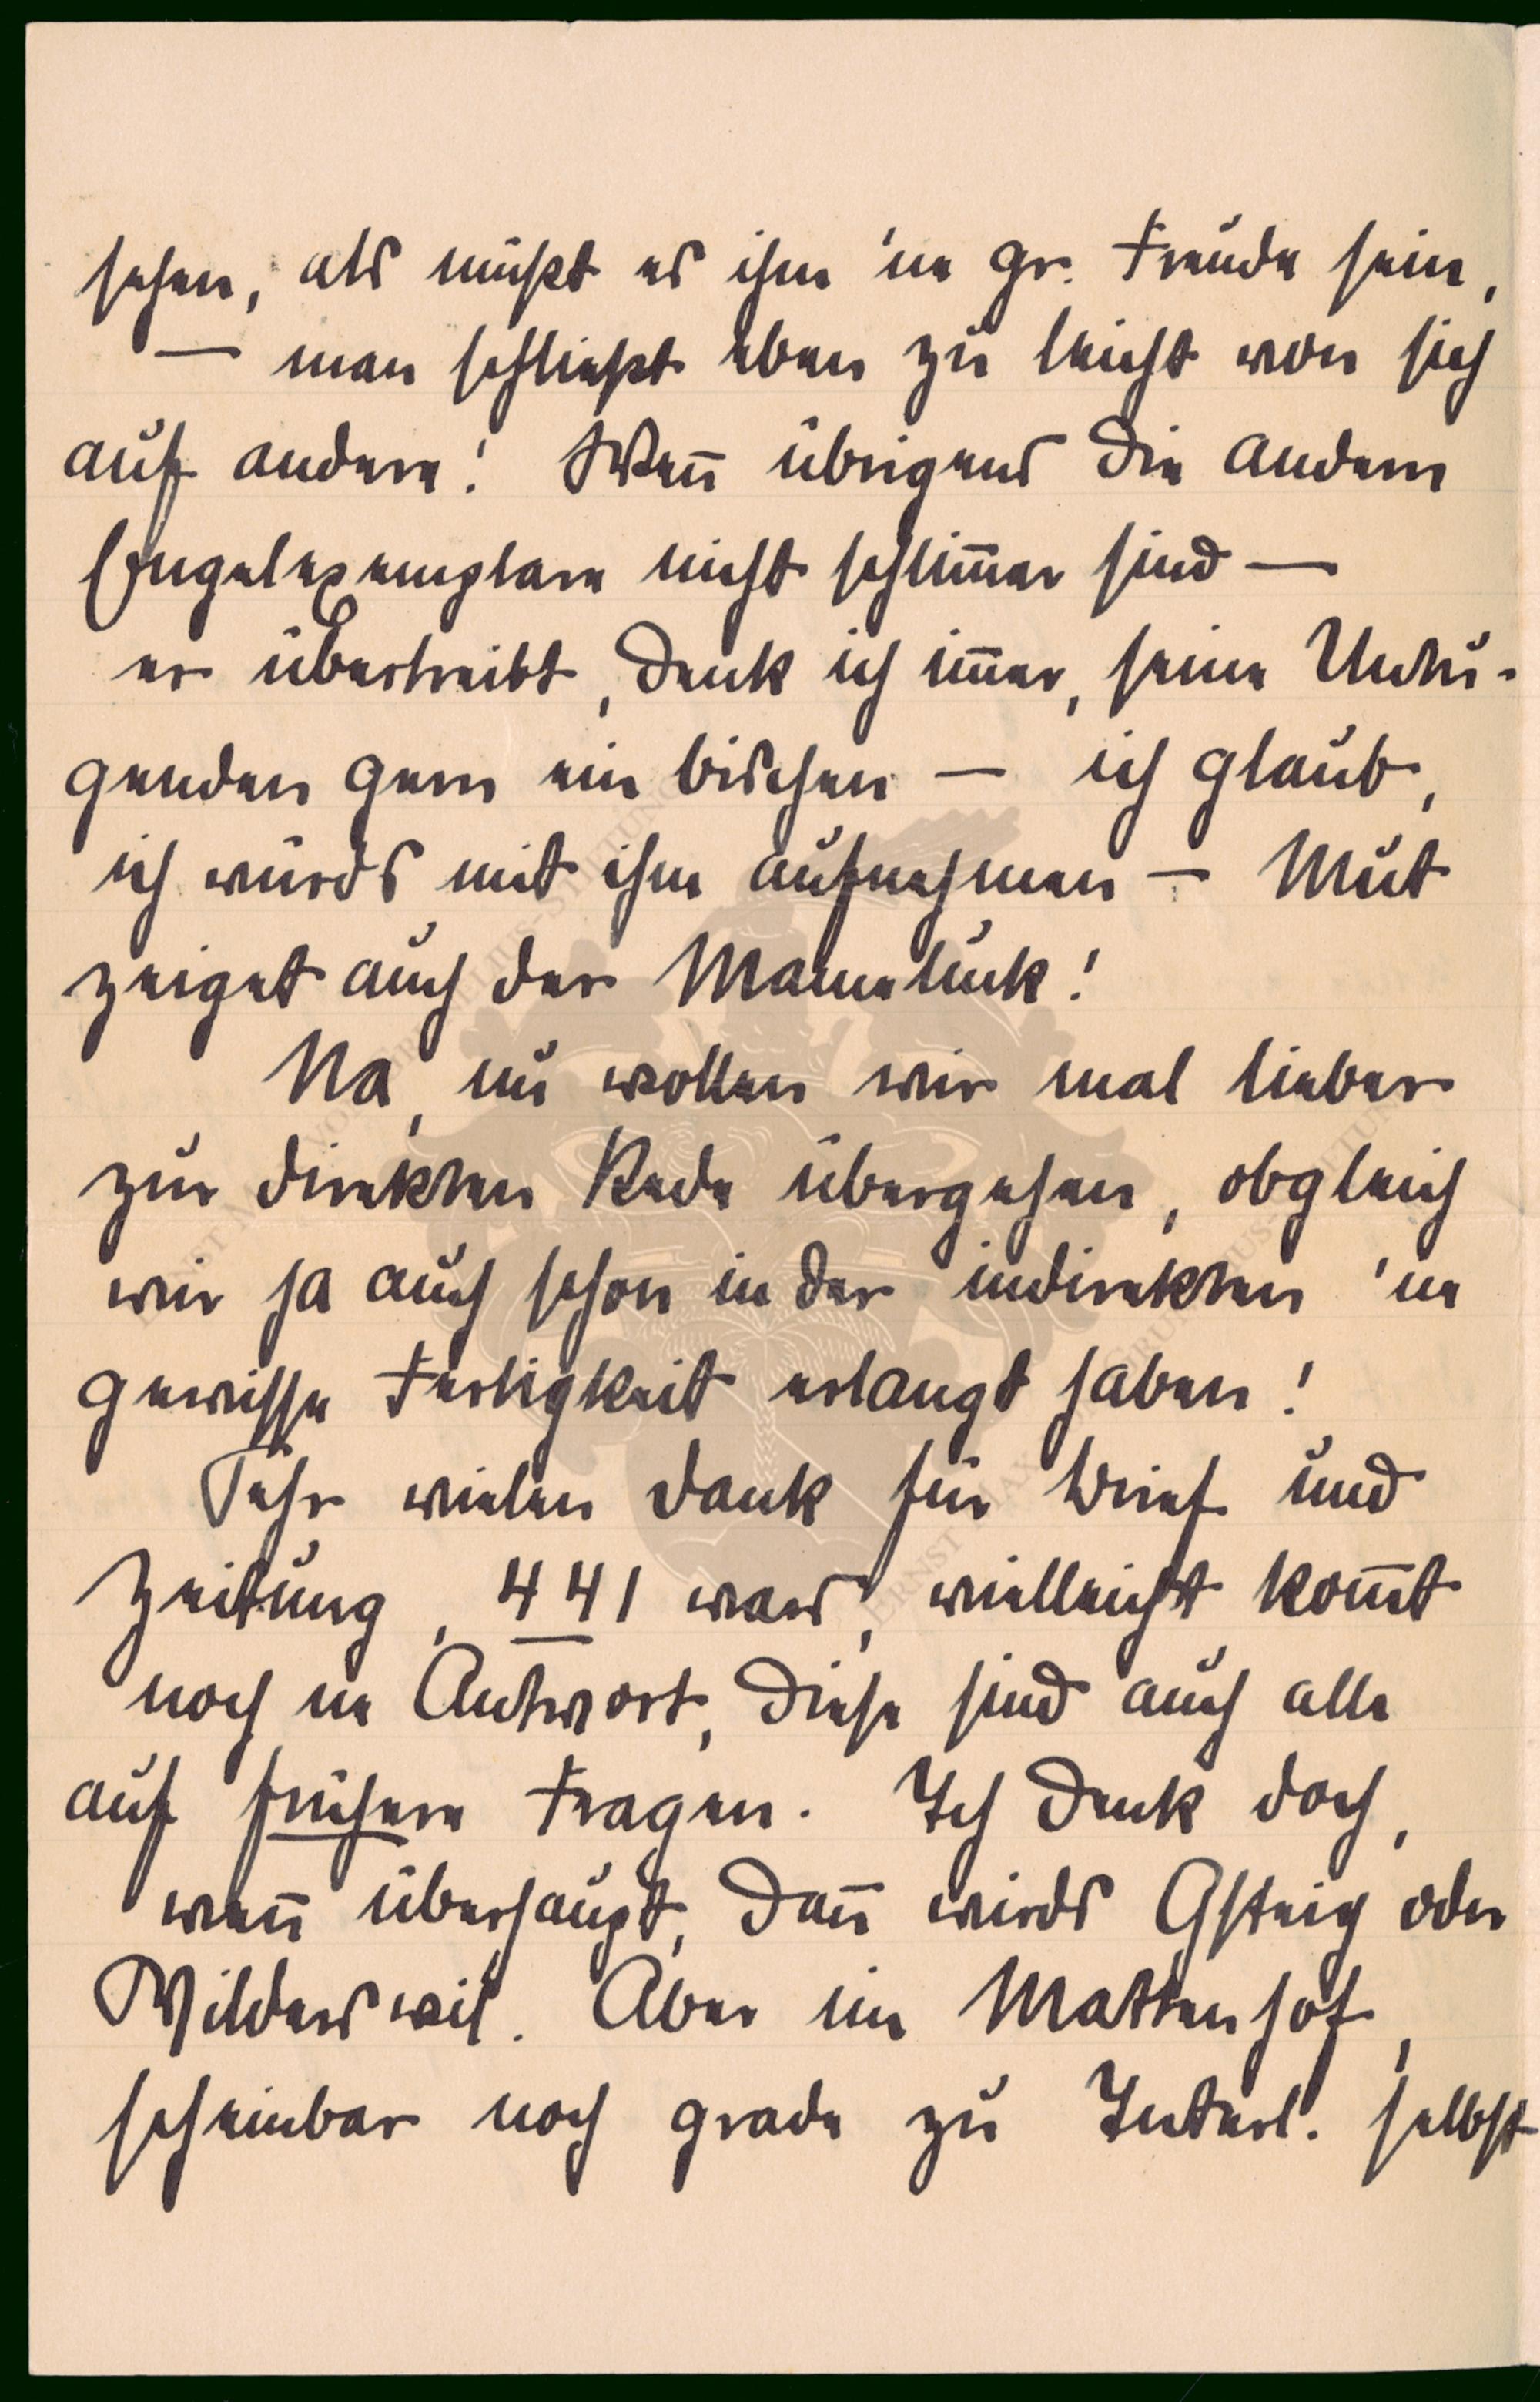 sehen, als müßt es ihm 'ne gr. Freude sein,
— man schließt eben zu leicht von sich
auf andere! Wen̄ übrigens die andern
Engelexemplare nicht schlim̄er sind —
er übertreibt, denk ich im̄er, seine Untu-
genden gern ein bischen — ich glaub,
ich würds mit ihm aufnehmen — Mut
zeiget auch der Mameluck!
Na, nu wollen wir mal lieber
zur direkten Rede übergehen, obgleich
wir ja auch schon in der indirekten 'ne
gewisse Fertigkeit erlangt haben!
Sehr vielen Dank für Brief und
Zeitung, 441 wars, vielleicht kom̄t
noch ne Antwort, diese sind auch alle
auf frühere Fragen. Ich denk doch,
wen̄ überhaupt, dan̄ wirds Gsteig oder
Wilderswil. Aber im Mattenhof,
scheinbar noch grade zu Interl. selbst